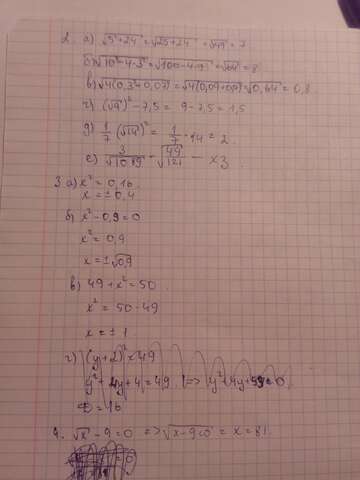 2. а) √5²+24 = √25+24 = √49 = 7
б) √10²-4·3² = √100-4·9 = √64 = 8
в) √4(0,3²+0,07) = √4(0,09+0,07) = √0,64 = 0,8
г) (√9)² - 7,5 = 9-7,5 = 1,5
д) 1/7 (√14)² = 1/7 · 14 = 2
е)
3. а) x² = 0,16
x = ± 0,4
б) x² - 0,9 = 0
x² = 0,9
x = ±√0,9
в) 49 + x² = 50
x² = 50 - 49
x = ± 1
г) (y+2)² = 49
y² + 4y + 4 = 49
D = 16
4. √x - 9 = 0 => √x - 9=0 = x = 81